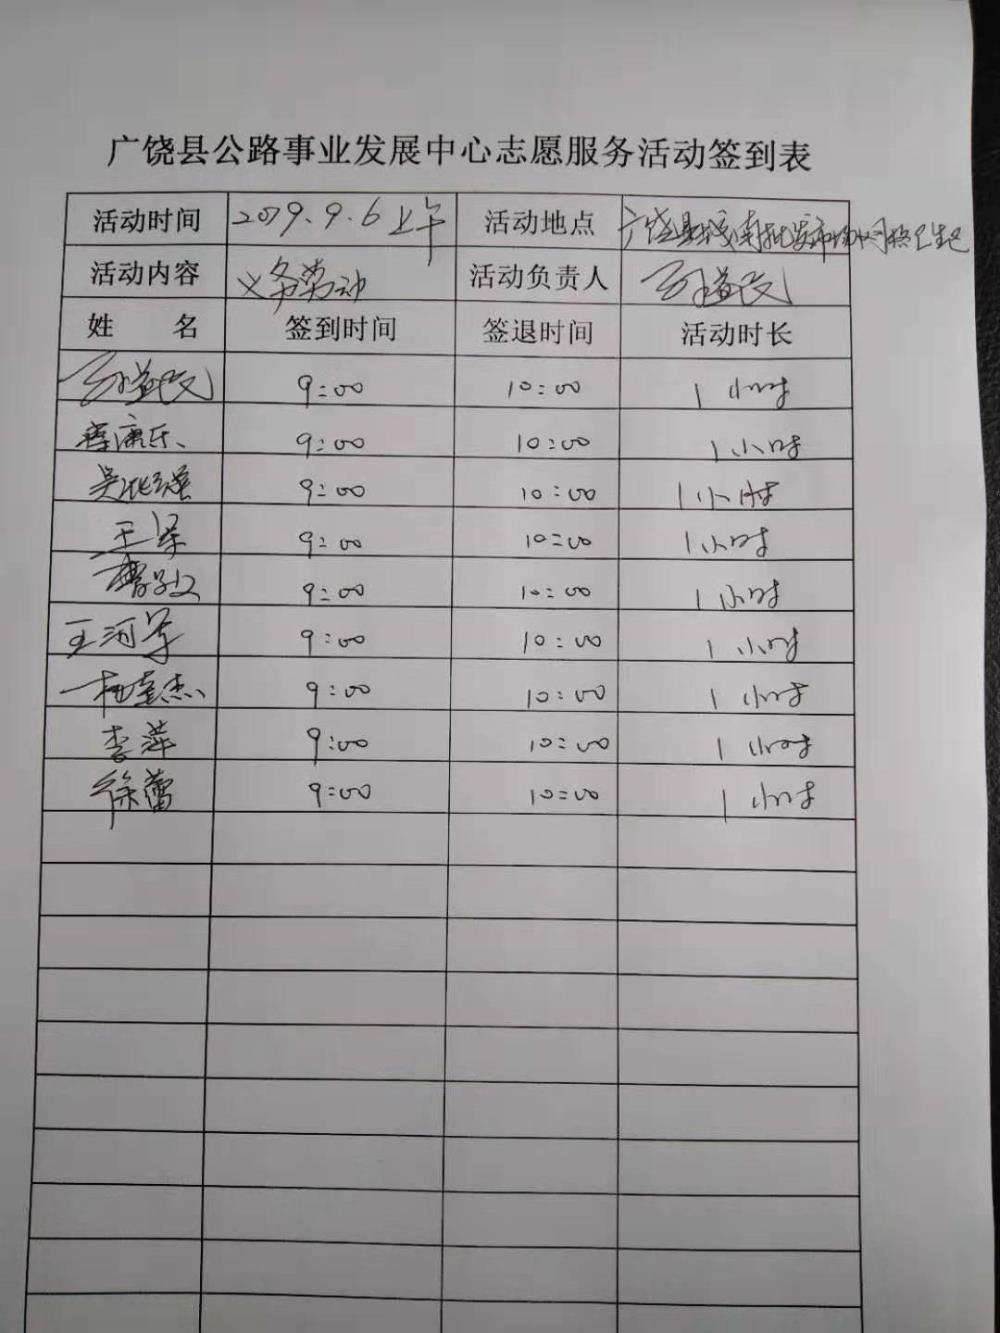 广饶县公路事业发展中心志愿服务活动签到表
活动时间 2019.9.6上午 活动地点 广饶县城南批发市场
活动内容 义务劳动 活动负责人
姓 名 签到时间 签退时间 活动时长
9:00 10:00 1小时
康乐 9:00 10:00 1小时
吴 9:00 10:00 1小时
王 9:00 10:00 1小时
曹 9:00 10:00 1小时
王河 9:00 10:00 1小时
杰 9:00 10:00 1小时
李萍 9:00 10:00 1小时
徐蕾 9:00 10:00 1小时